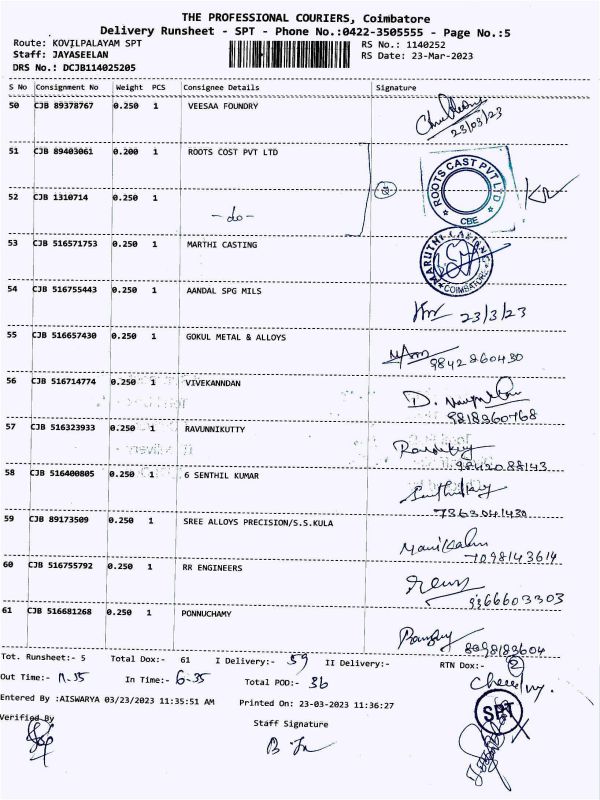 THE PROFESSIONAL COURIERS, Coimbatore
Delivery Runsheet - SPT - Phone No.:0422-3505555 - Page No.:5
Route: KOVILPALAYAM SPT
RS No.: 1140252
Staff: JAYASEELAN
RS Date: 23-Mar-2023
DRS No.: DCJB114025205
S No Consignment No Weight PCS Consignee Details Signature
50 CJB 89378767 0.250 1 VEESAA FOUNDRY
23/03/23
51 CJB 89403061 0.200 1 ROOTS COST PVT LTD
ROOTS CAST PVT LTD
CBE
52 CJB 1310714 0.250 1 -do-
2
53 CJB 516571753 0.250 1 MARTHI CASTING
COIMBATORE
54 CJB 516755443 0.250 1 AANDAL SPG MILS
23/3/23
55 CJB 516657430 0.250 1 GOKUL METAL & ALLOYS
9842860430
56 CJB 516714774 0.250 1 VIVEKANNDAN
57 CJB 516323933 0.250 1 RAVUNNIKUTTY
9842088143
58 CJB 516400805 0.250 1 6 SENTHIL KUMAR
7363041430
59 CJB 89173509 0.250 1 SREE ALLOYS PRECISION/S.S.KULA
7098143614
60 CJB 516755792 0.250 1 RR ENGINEERS
9366603303
61 CJB 516681268 0.250 1 PONNUCHAMY
8098183604
Tot. Runsheet:- 5 Total Dox:- 61 I Delivery:- 59 II Delivery:- RTN Dox:- 2
Out Time:- 11.35 In Time:- 6-35 Total POD:- 36
Entered By :AISWARYA 03/23/2023 11:35:51 AM Printed On: 23-03-2023 11:36:27
SPT
Verified By
Staff Signature